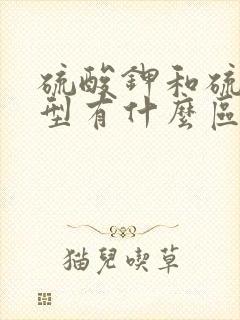 硫酸鉀和硫
型有什麼區
猫兒喫草